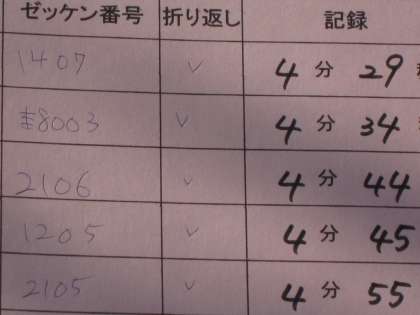 ゼッケン番号 折り返し 記録
1407 ✓ 4分 29
8003 ✓ 4分 34
2106 ✓ 4分 44
1205 ✓ 4分 45
2105 ✓ 4分 55